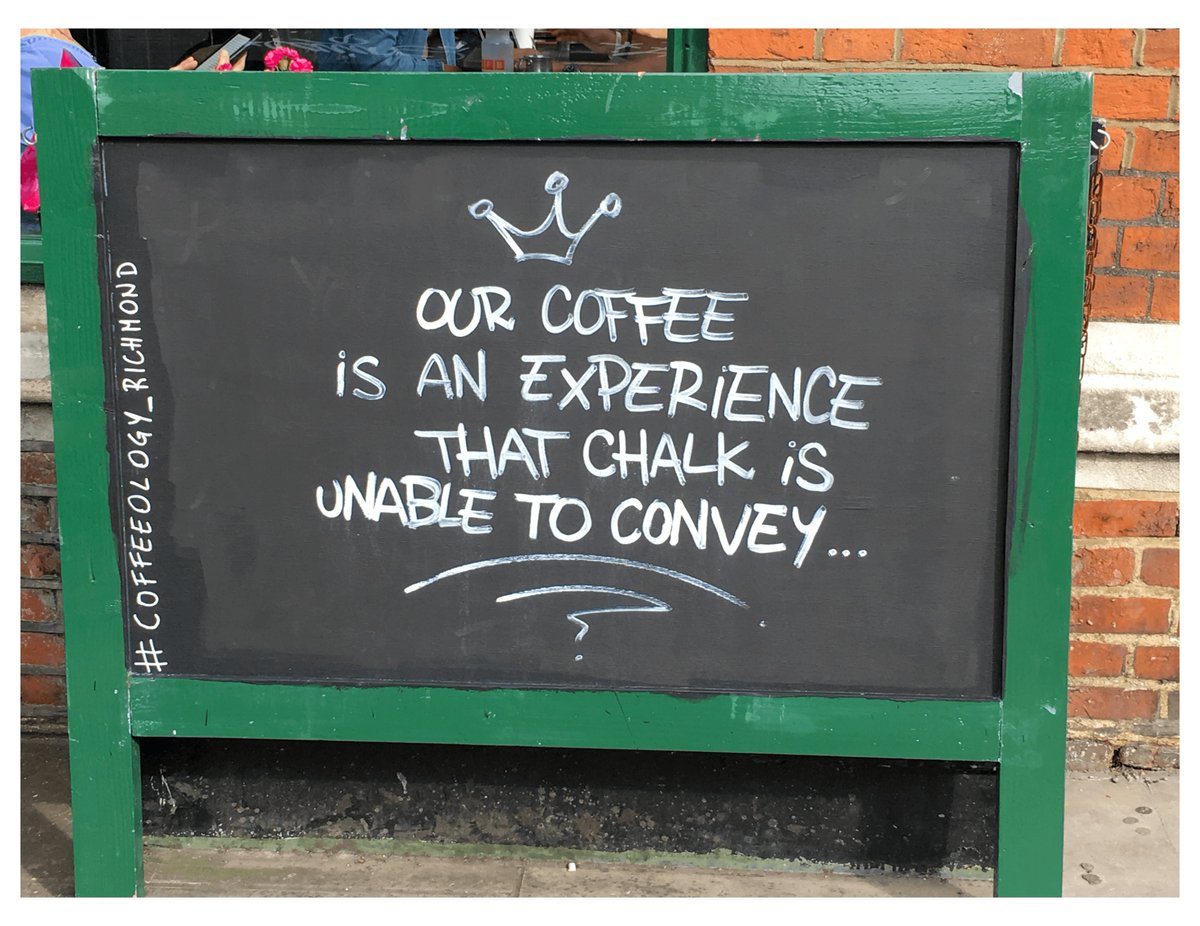 OUR COFFEE
iS AN EXPERiENCE
THAT CHALK iS
UNABLE TO CONVEY...
#COFFEEOLOGY_RICHMOND